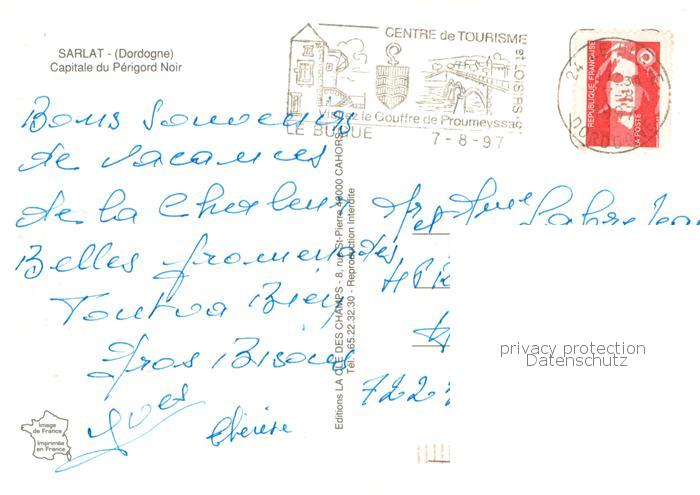 SARLAT - (Dordogne)
Capitale du Périgord Noir
CENTRE de TOURISME
et LOISIRS
Visitez le Gouffre de Proumeyssac
LE BUGUE
7-8-97
24
DORDOGNE
REPUBLIQUE FRANÇAISE
LA POSTE
Bons Souvenirs
de vacances
de la Chaleur
Belles promenades
Tout va Bien
Gros Bisous
Yves
Thérèse
Mr et Mme
722
Editions LA CLE DES CHAMPS - 8, rue St-Pierre 46000 CAHORS
Tél. 65.22.32.30 - Reproduction Interdite
Image
de France
Imprimée
en France
privacy protection
Datenschutz